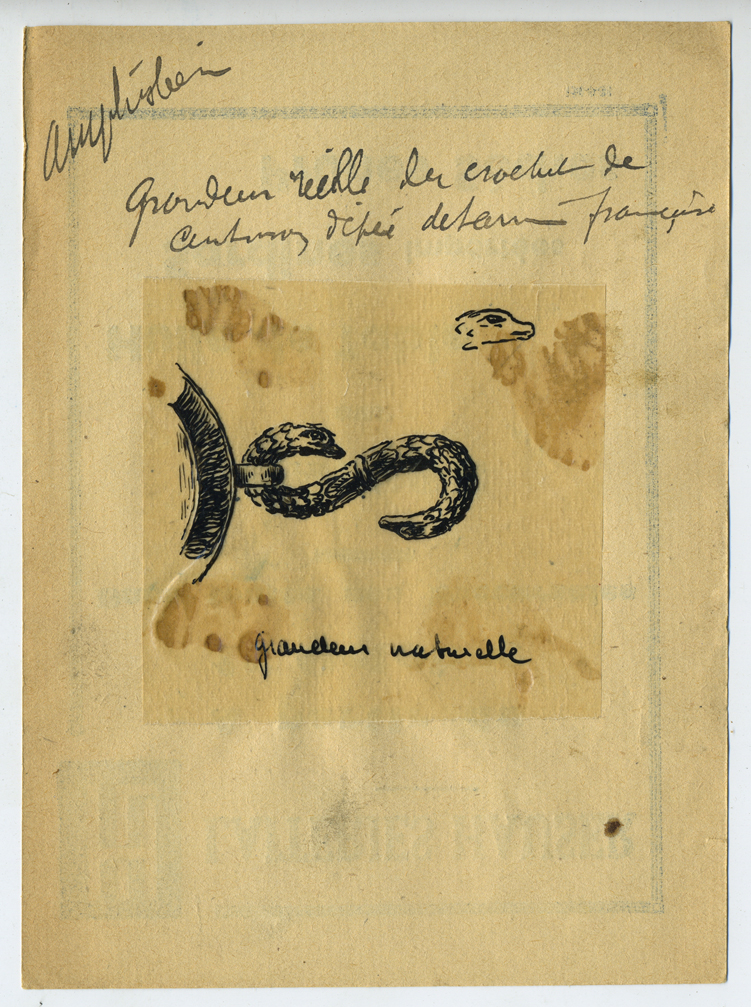 amphisbein
Grandeur réelle du crochet de
ceinturon d'épée de française
grandeur naturelle